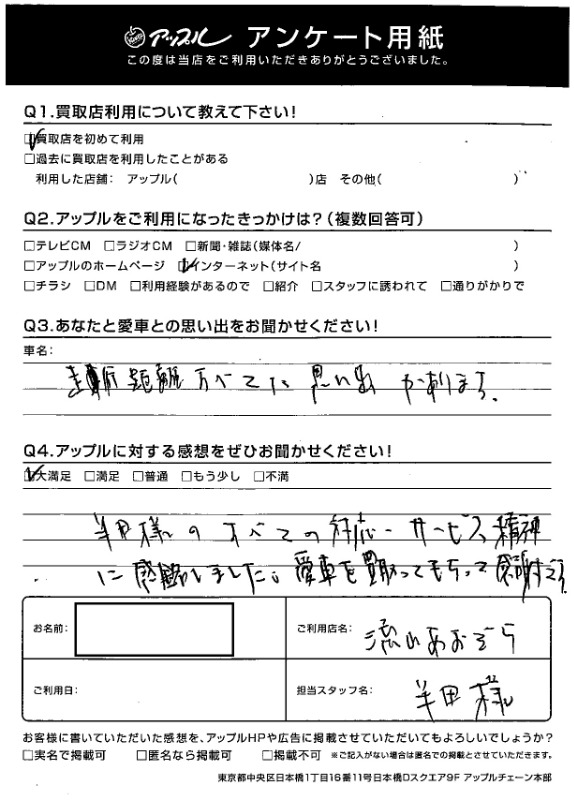 アップル アンケート用紙
この度は当店をご利用いただきありがとうございました。
Q1.買取店利用について教えて下さい!
☑買取店を初めて利用
□過去に買取店を利用したことがある
利用した店舗: アップル( )店 その他( )
Q2.アップルをご利用になったきっかけは?(複数回答可)
□テレビCM □ラジオCM □新聞・雑誌(媒体名/ )
□アップルのホームページ ☑インターネット(サイト名 )
□チラシ □DM □利用経験があるので □紹介 □スタッフに誘われて □通りがかりで
Q3.あなたと愛車との思い出をお聞かせください!
車名:
走行距離すべてに思い出があります。
Q4.アップルに対する感想をぜひお聞かせください!
☑大満足 □満足 □普通 □もう少し □不満
半田様のすべての対応・サービス精神
に感銘しました。愛車を買取ってもらって感謝です。
お名前: ご利用店名: 流山あおぞら
ご利用日: 担当スタッフ名: 半田様
お客様に書いていただいた感想を、アップルHPや広告に掲載させていただいてもよろしいでしょうか?
□実名で掲載可 □匿名なら掲載可 □掲載不可 ※ご記入がない場合は匿名での掲載とさせていただきます。
東京都中央区日本橋1丁目16番11号日本橋Dスクエア9F アップルチェーン本部